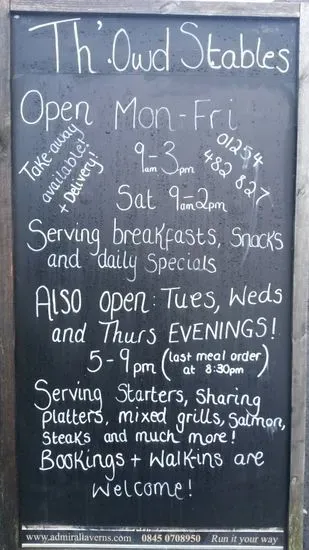 Th'Owd Stables
Open Mon-Fri
Take-away
available!
+ Delivery!
9am-3pm
01254
482 827
Sat 9am-2pm
Serving breakfasts, snacks
and daily specials
ALSO open: Tues, Weds
and Thurs EVENINGS!
5-9pm (last meal order
at 8:30pm)
Serving Starters, Sharing
platters, mixed grills, salmon,
steaks and much more!
Bookings + Walk-ins are
welcome!
www.admiraltaverns.com 0845 0708950 Run it your way